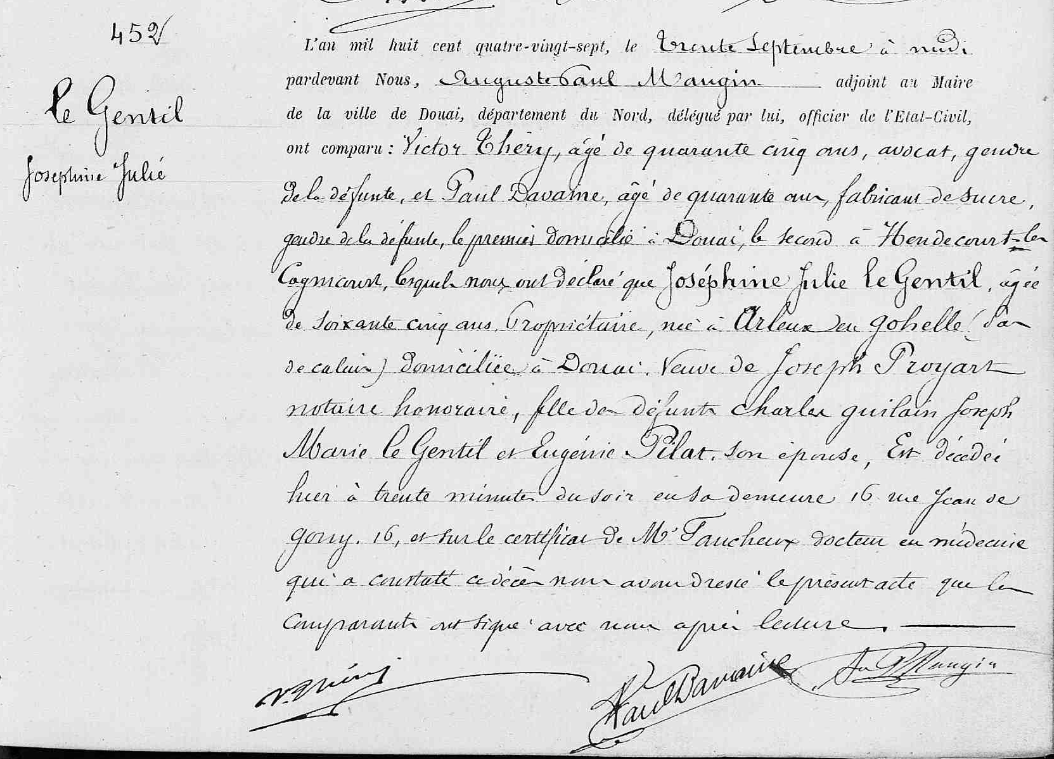 452
le Gentil
Joséphine Julie
L'an mil huit cent quatre-vingt-sept, le trente Septembre à midi
pardevant Nous, Auguste Paul Maugin adjoint au Maire
de la ville de Douai, département du Nord, délégué par lui, officier de l'Etat-Civil,
ont comparu : Victor Théry, âgé de quarante cinq ans, avocat, gendre
de la défunte, et Paul Davaine, âgé de quarante ans, fabricant de sucre,
gendre de la défunte, le premier domicilié à Douai, le second à Hendecourt-les
Cagnicourt, lesquels nous ont déclaré que Joséphine Julie le Gentil, âgée
de soixante cinq ans, Propriétaire, née à Arleux en gohelle (Pas
de calais) domiciliée à Douai, Veuve de Joseph Proyart
notaire honoraire, fille des défunts Charles guilain Joseph
Marie le Gentil et Eugénie Pilat, son épouse, Est décédée
hier à trente minutes du soir en sa demeure 16 rue Jean de
gouy, 16, et sur le certificat de Mr Faucheux docteur en médecine
qui a constaté ce décès nous avons dressé le présent acte que les
comparants ont signé avec nous après lecture.
V. Théry
Paul Davaine
Au P Maugin